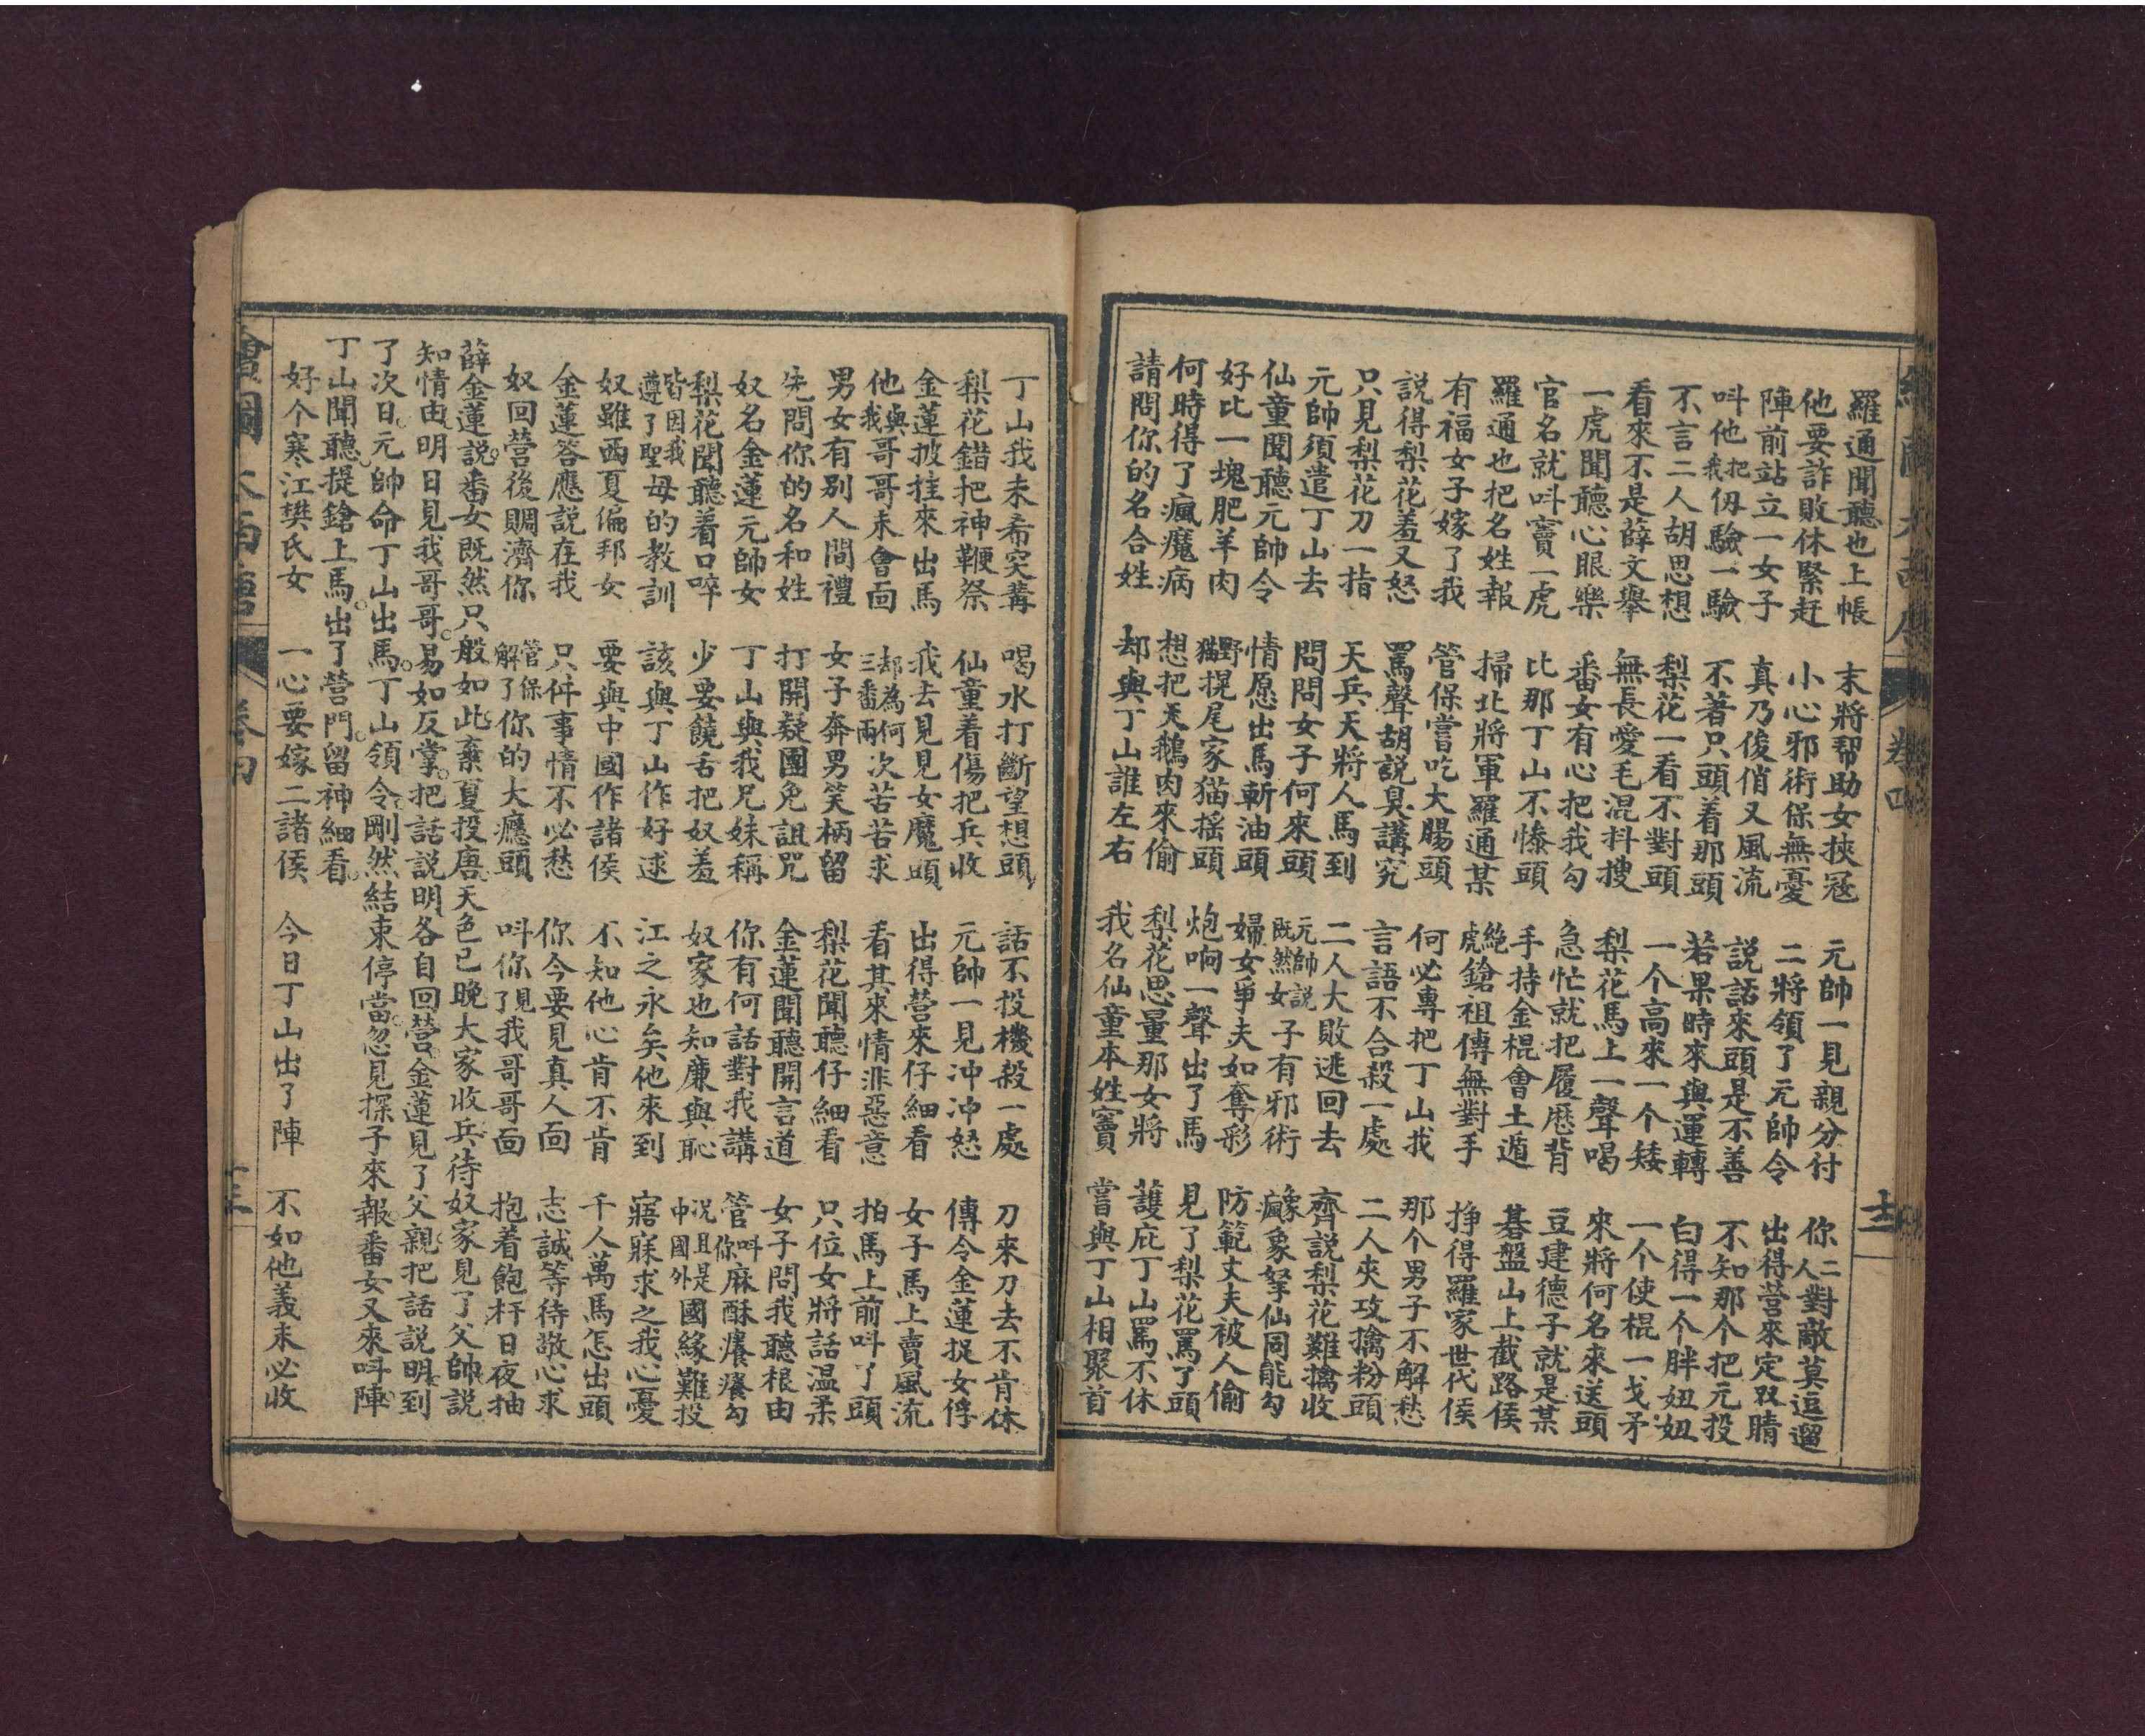 羅通聞聽也上帳 末將帮助女挾冦 元帥一見親分付 你二人對敵莫逗遛
他要詐敗休緊赶 小心邪術保無憂 二將領了元帥令 出得营來定双睛
陣前站立一女子 真乃俊俏又風流 説話來頭是不善 不知那个把元投
呌他把我仭驗一驗 不著只頭着那頭 若果時來與運轉 白得一个胖妞妞
不言二人胡思想 梨花一看不對頭 一个高來一个矮 一个使棍一戈矛
看來不是薛文舉 無長愛毛混抖搜 梨花馬上一聲喝 來將何名來送頭
一虎聞聽心眼樂 番女有心把我勾 急忙就把履歷背 豆建德子就是某
官名就呌竇一虎 比那丁山不愫頭 手持金棍會土遁 碁盤山上截路侯
羅通也把名姓報 掃北將軍羅通某 絕虎鎗祖傳無對手 掙得羅家世代侯
有福女子嫁了我 管保嘗吃大腸頭 何必專把丁山我 那个男子不解愁
説得梨花羞又怒 罵聲胡説臭講究 言語不合殺一處 二人夾攻擒粉頭
只見梨花刀一指 天兵天將人馬到 二人大敗逃回去 齊説梨花難擒收
元帥須遣丁山去 問問女子何來頭 元帥説既然女子有邪術 象瘋象拏仙同能勾
仙童聞聽元帥令 情愿出馬斬油頭 婦女爭夫如奪彩 防範丈夫被人偷
好比一塊肥羊肉 野猫掍尾家猫搖頭 炮响一聲出了馬 見了梨花罵了頭
何時得了瘋魔病 想把天鵝肉來偷 梨花思量那女將 護庇丁山罵不休
請問你的名合姓 却與丁山誰左右 我名仙童本姓竇 嘗與丁山相聚首
丁山我未希罕搆 喝水打斷望想頭 話不投機殺一處 刀來刀去不肯休
梨花錯把神鞭祭 仙童着傷把兵收 元帥一見冲冲怒 傳令金蓮捉女俘
金蓮披挂來出馬 我去見見女魔頭 出得营來仔細看 女子馬上賣風流
他與我哥哥未會面 却為何三番兩次苦苦求 看其來情非惡意 拍馬上前呌了頭
男女有别人間禮 女子奔男笑柄留 梨花聞聽仔細看 只位女將話温柔
先問你的名和姓 打開疑團免詛咒 金蓮聞聽開言道 女子問我聽根由
奴名金蓮元帥女 丁山與我兄妹稱 你有何話對我講 管呌你麻酥癢癢勾
梨花聞聽着口啐 少要饒舌把奴羞 奴家也知廉與恥 况且是中國外國緣難投
皆因我遵了聖母的教訓 該與丁山作好逑 江之永矣他來到 寤寐求之我心憂
奴雖西夏偏邦女 要與中國作諸侯 不知他心肯不肯 千人萬馬怎出頭
金蓮答應説在我 只件事情不必愁 你今要見真人面 志誠等待敬心求
奴回营後賙濟你 管保解了你的大癮頭 呌你見了我哥哥面 抱着鮑杆日夜抽
薛金蓮説。番女既然只般如此棄夏投唐。天色已晚大家收兵。待奴家見了父帥。説
知情由。明日見我哥哥。易如反掌。把話説明。各自回营。金蓮見了父親。把話説明。到
了次日。元帥命丁山出馬。丁山領令。剛然結束停當。忽見探子來報。番女又來呌陣。
丁山聞聽。提鎗上馬。出了营門。留神細看。
好个寒江樊氏女 一心要嫁二諸侯 今日丁山出了陣 不如他義未必收
繪圖大西唐 卷四 十三